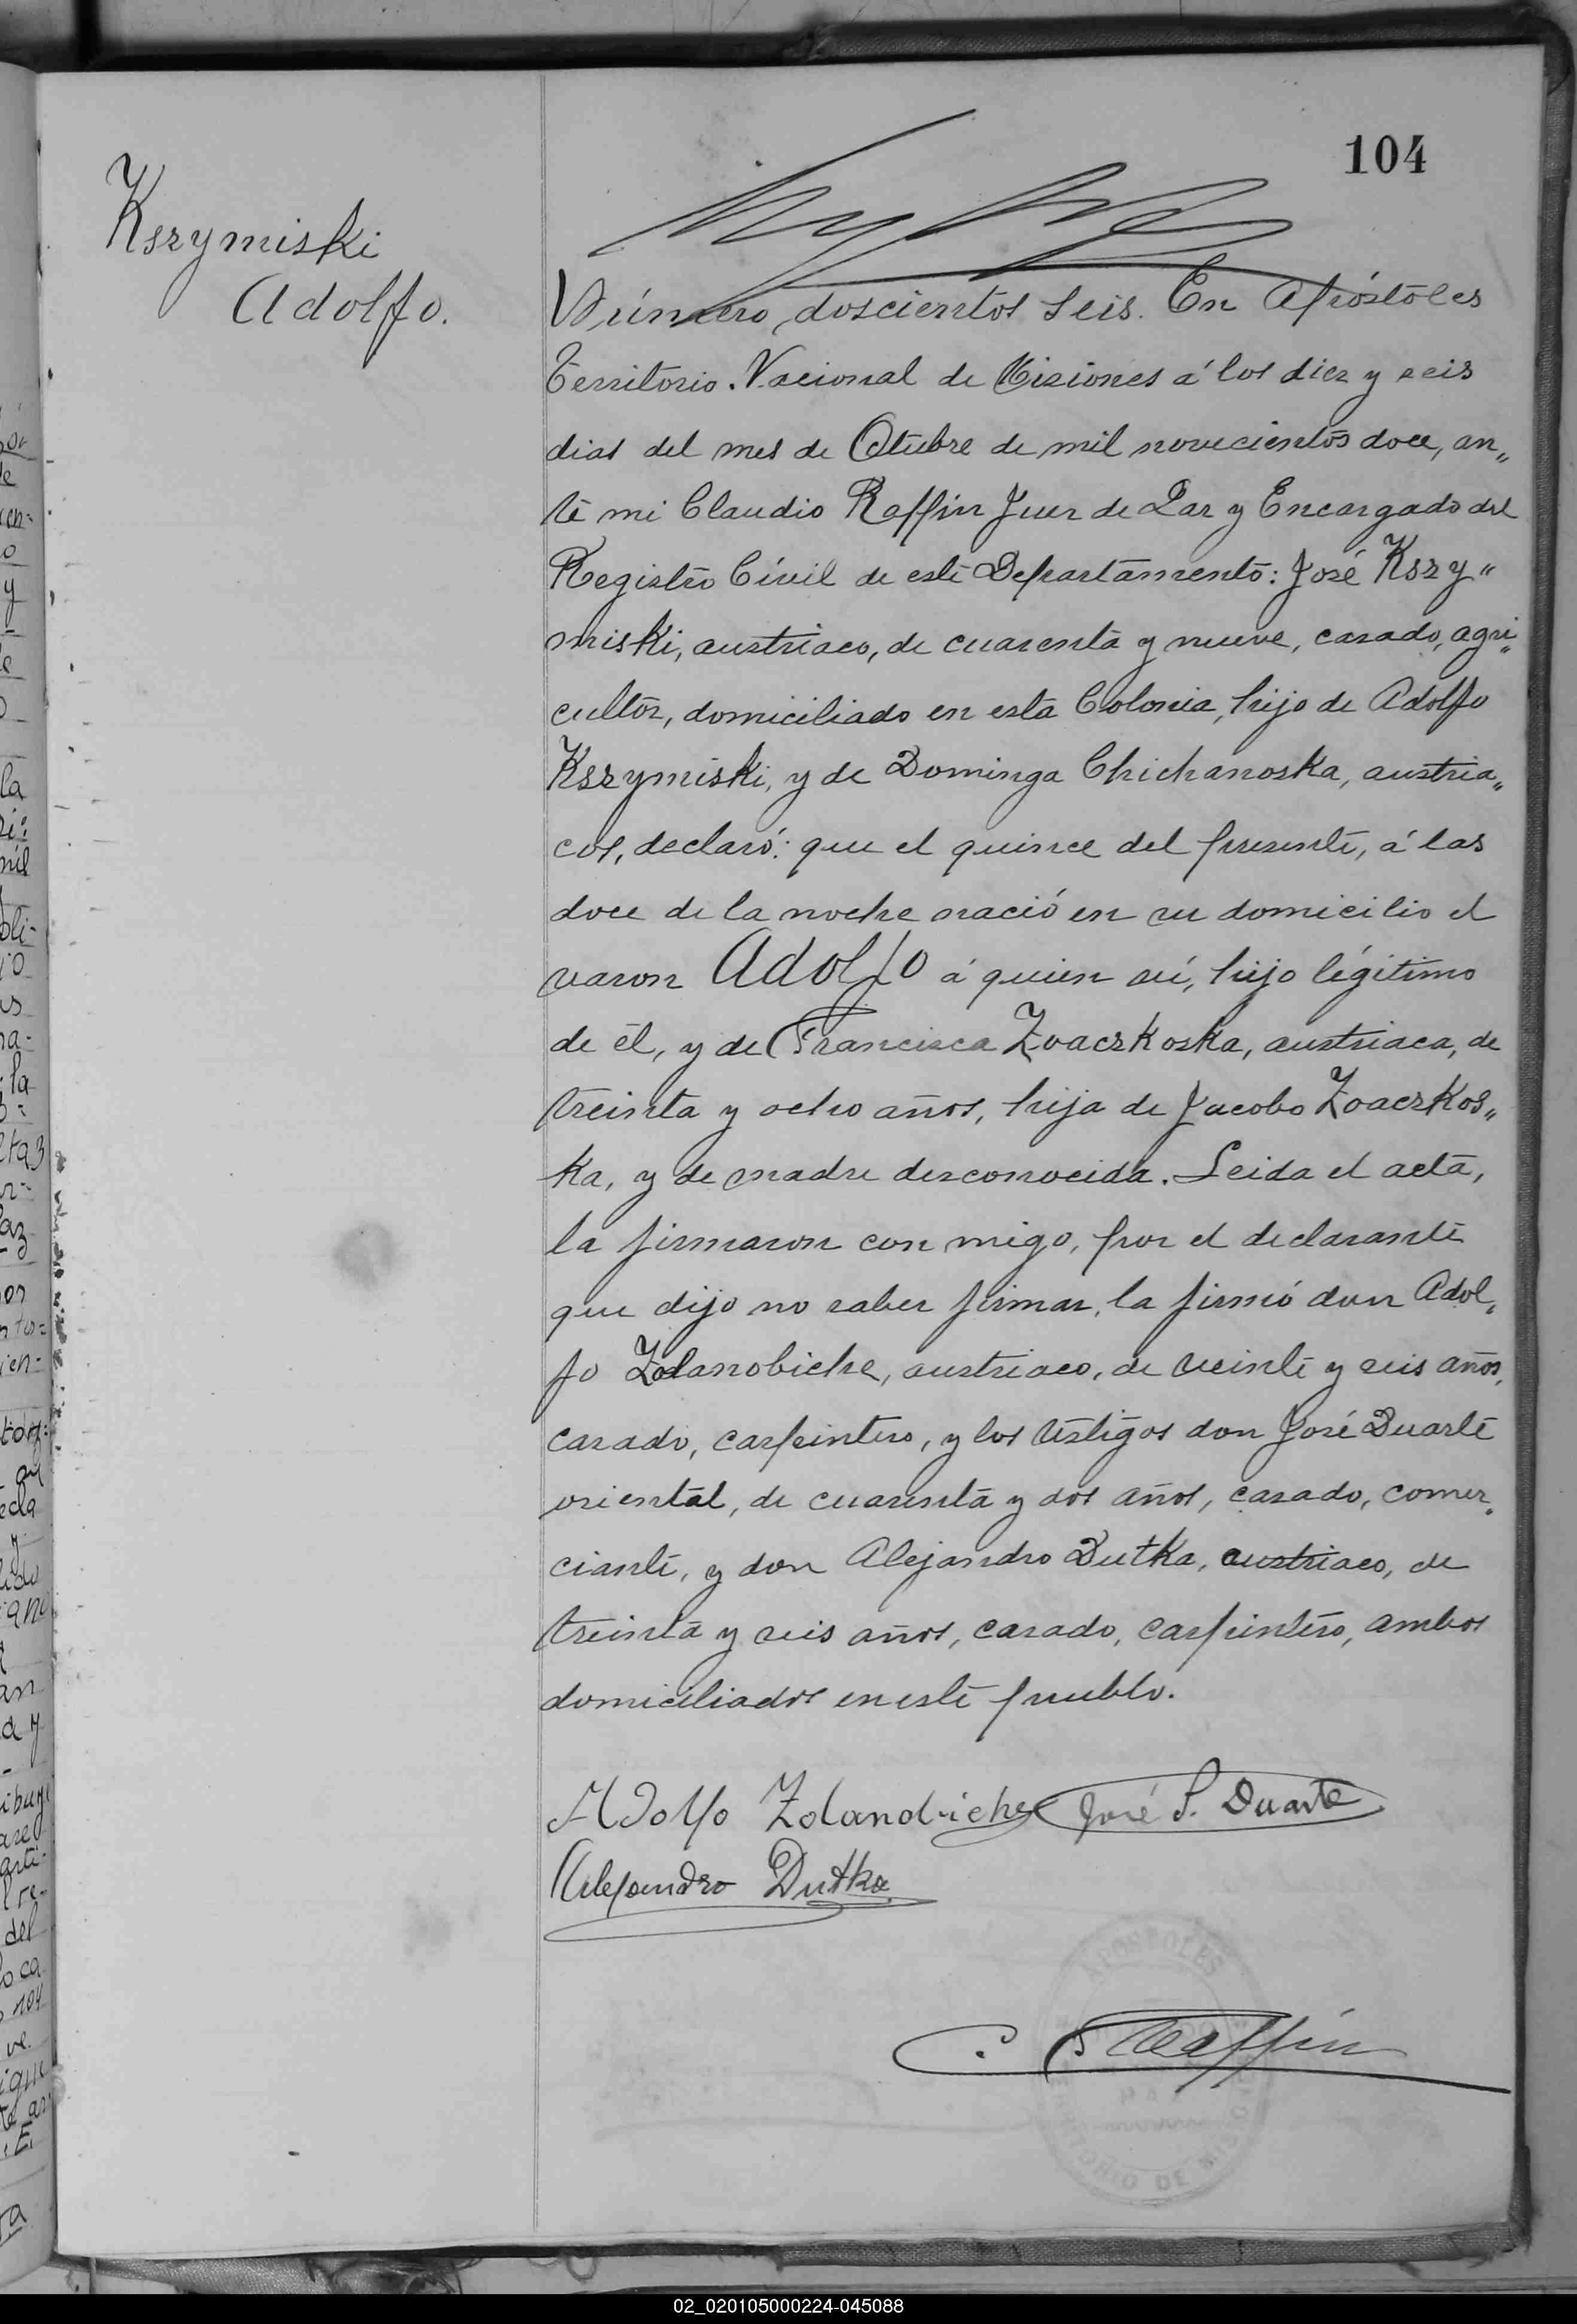 104
Kszymiski
Adolfo.
Número doscientos seis. En Apóstoles
Territorio Nacional de Misiones á los diez y seis
dias del mes de Otubre de mil novecientos doce, an„
te mi Claudio Raffin Juez de Paz y Encargado del
Registro Civil de este Departamento: José Kszy„
miski, austriaco, de cuarenta y nueve, casado, agri„
cultor, domiciliado en esta Colonia, hijo de Adolfo
Kszymiski, y de Dominga Chichanoska, austria„
cos, declaró: que el quince del presente, á las
doce de la noche nació en su domicilio el
varon Adolfo á quien ví, hijo légitimo
de él, y de Francisca Zoaczkoska, austriaca, de
treinta y ocho años, hija de Jacobo Zoaczkos„
ka, y de madre desconocida. Leida el acta,
la firmaron con migo, por el declarante
que dijo no saber firmar, la firmó don Adol„
fo Zdanobiche, austriaco, de veinte y seis años,
casado, carpintero, y los testigos don José Duarte
oriental, de cuarenta y dos años, casado, comer„
ciante, y don Alejandro Dutka, austriaco, de
treinta y seis años, casado, carpintero, ambos
domiciliados en este pueblo.
Adolfo Zdanobiche José S. Duarte
Alejandro Dutka
C. Raffin
02_020105000224-045088